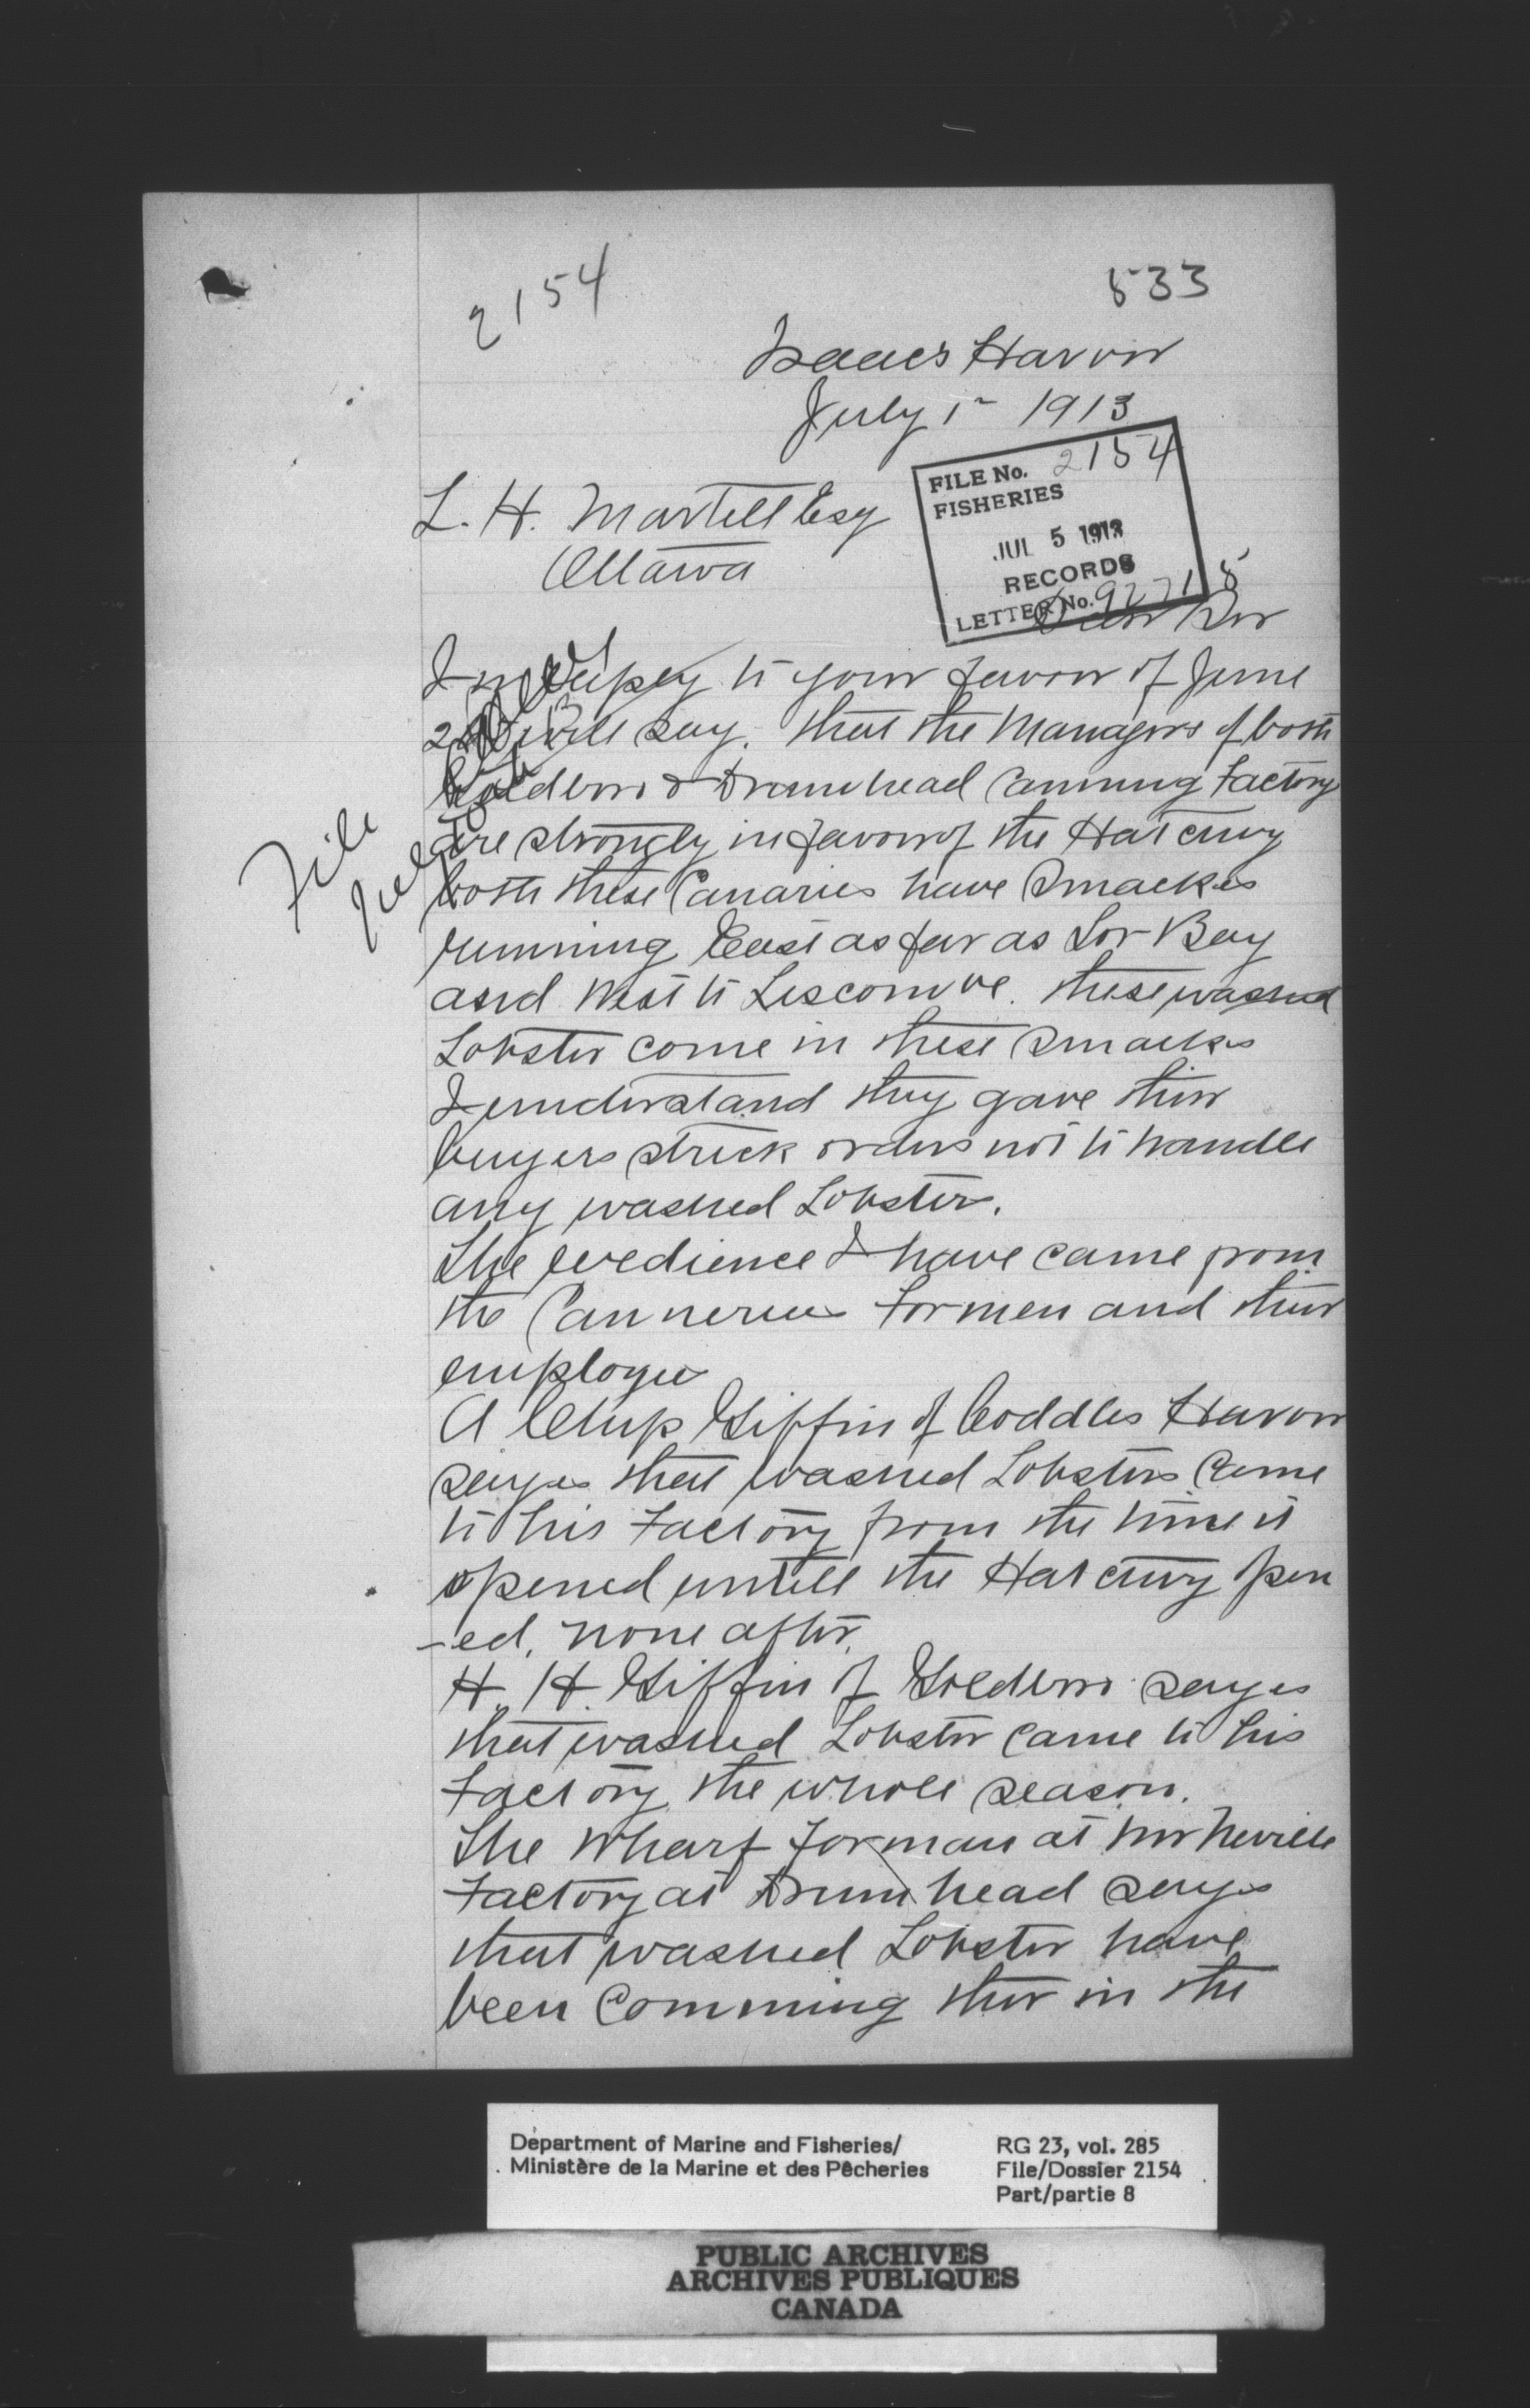 2154
533
Isaacs Harvor
July 1- 1913
FILE No. 2154
FISHERIES
JUL 5 1913
RECORDS
LETTER No. 92715
L. H. Martell Esq
Ottawa
Dear Sir
In Reply to your favor of June
will say. that the Managers of both
Goldboro & Drumhead Canning Factory
are strongly in favor of the Hatchry
both these Canaries have Smackes
running East as far as Lor Bay
and West to Liscombe. these washed
Lobster come in these Smackes
I understand they gave thier
buyers strick orders not to handle
any washed Lobster.
The evedience I have came from
the Canneries formen and their
employees
A Giffin of Coddles Harvor
sayes that washed Lobsters came
to his Factory from the time it
opened untill the Hatchry open
-ed, none after.
H. H. Giffin of Goldboro sayes
that washed Lobster came to his
Factory the whole season.
The Wharf forman at Mr Neville
Factory at Drumhead sayes
that washed Lobster have
been Comming ther in the
File
Department of Marine and Fisheries/
Ministère de la Marine et des Pêcheries
RG 23, vol. 285
File/Dossier 2154
Part/partie 8
PUBLIC ARCHIVES
ARCHIVES PUBLIQUES
CANADA